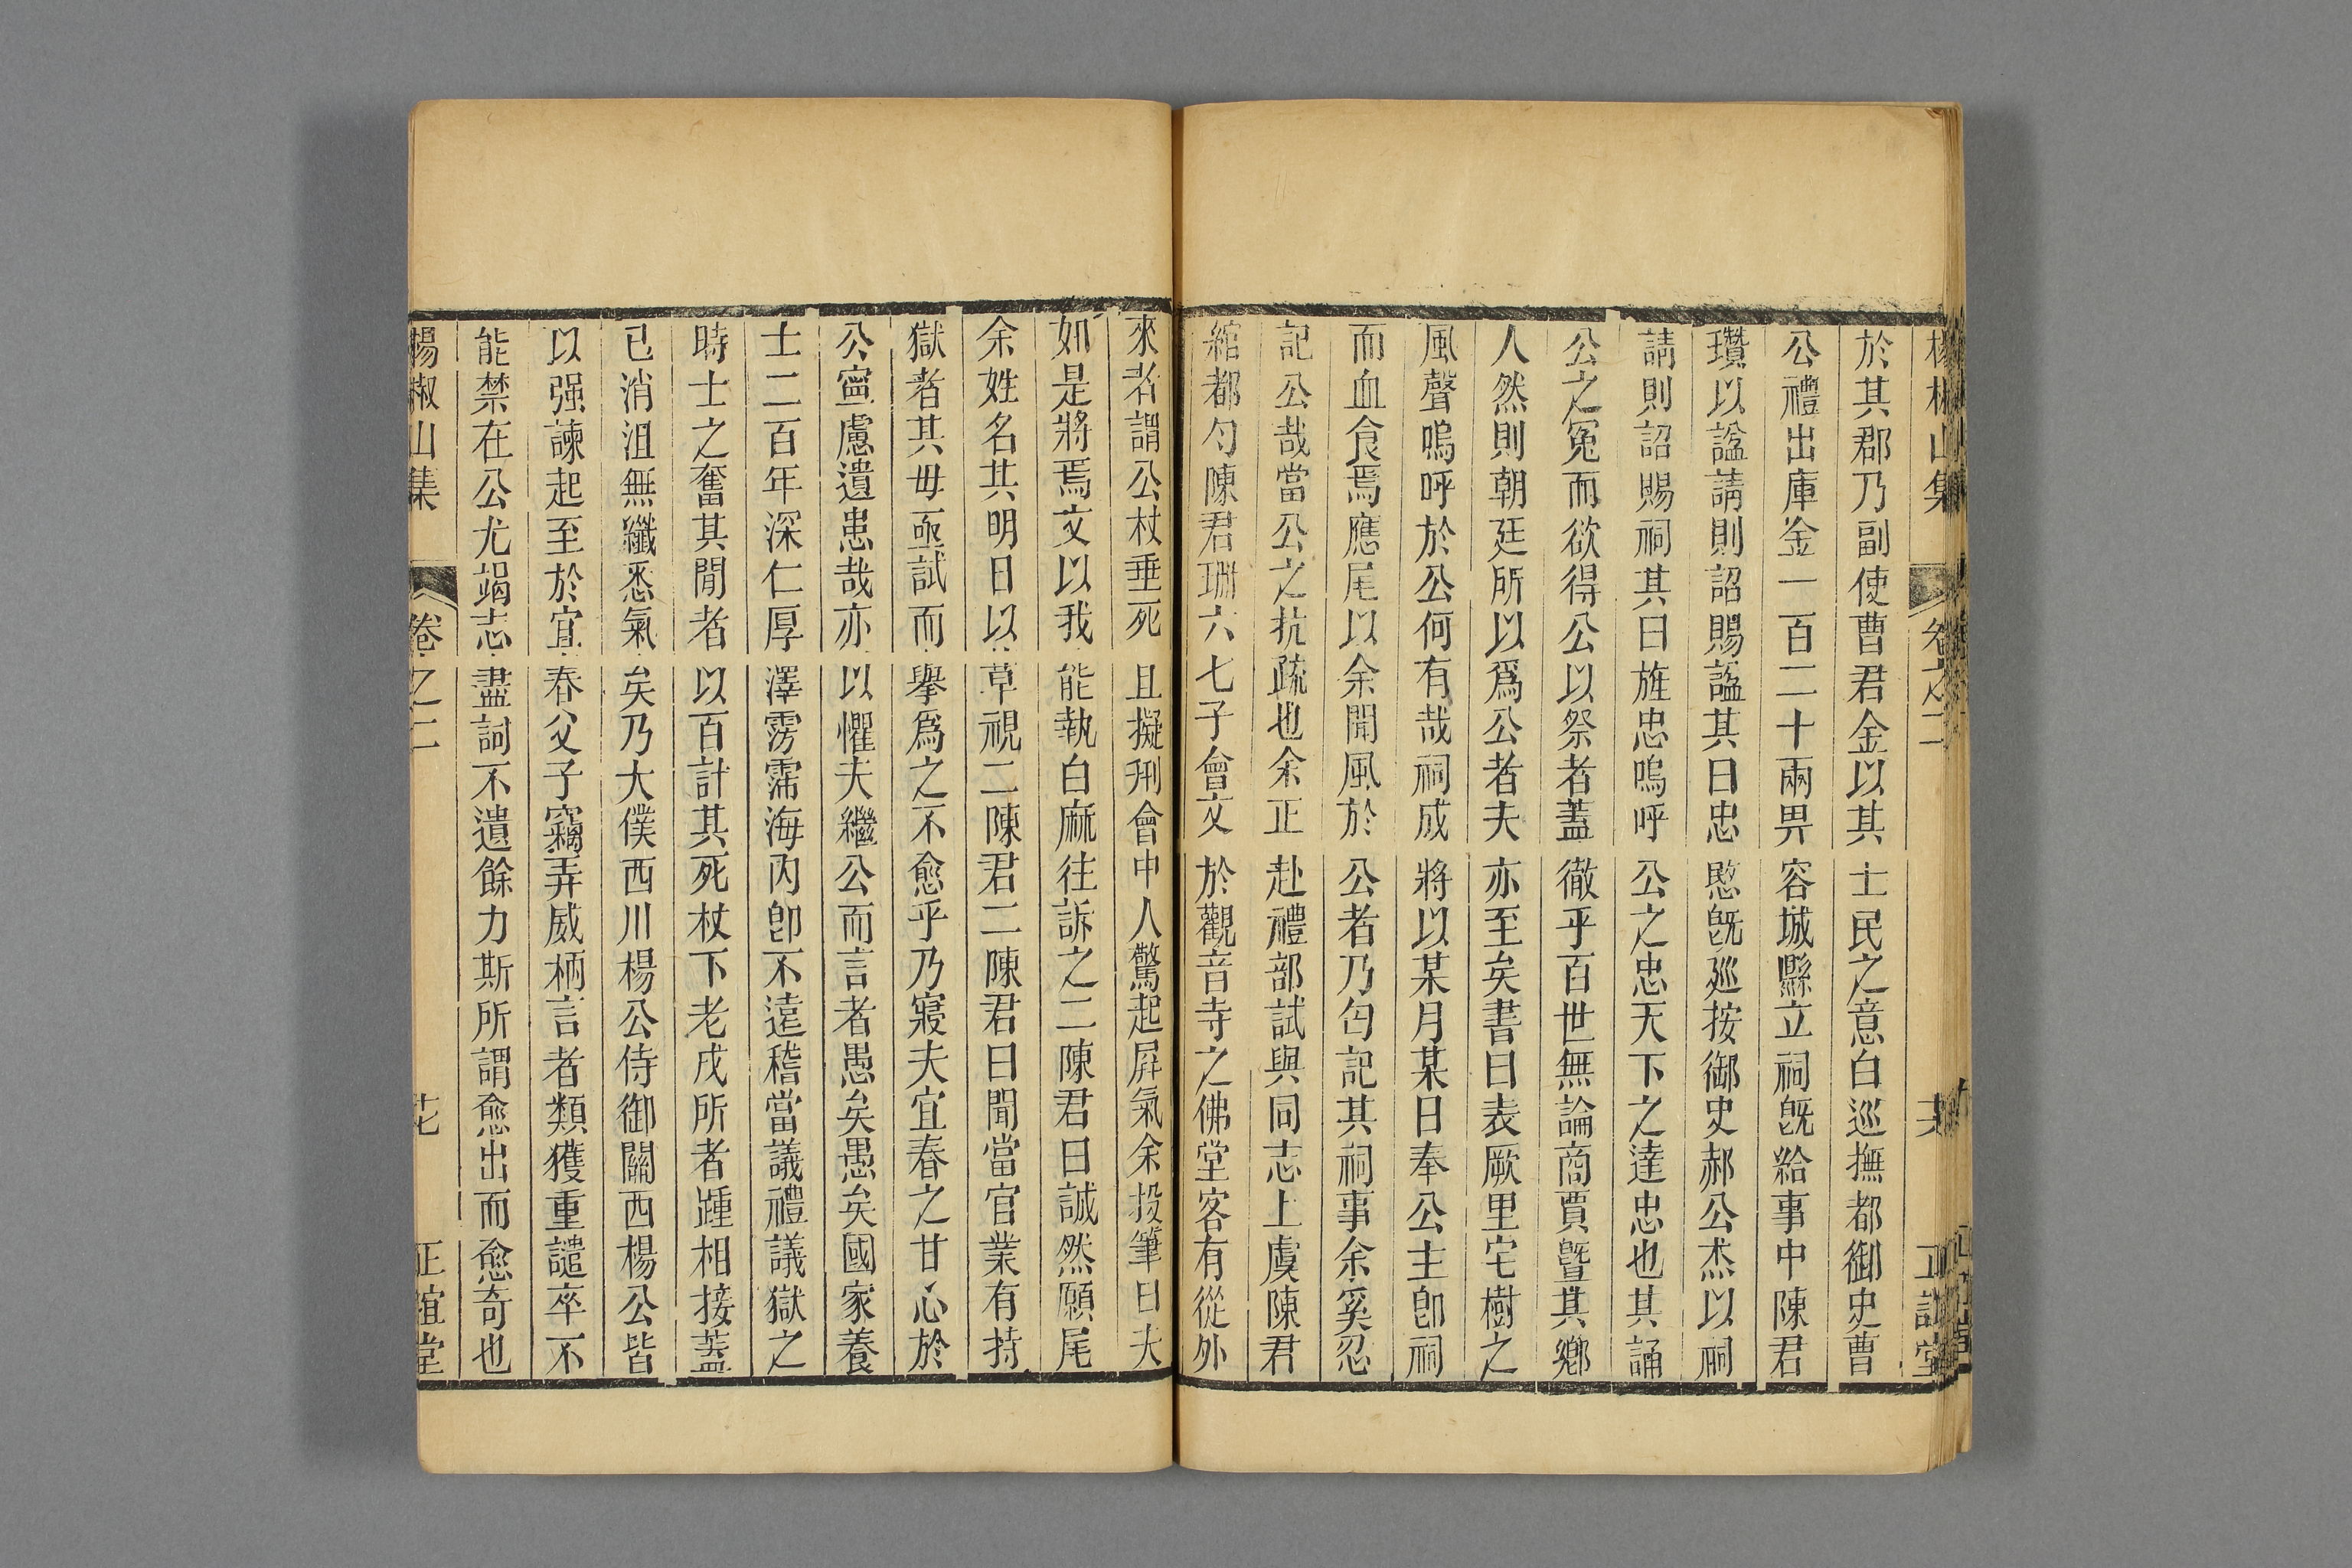 楊椒山集 卷之二 六 正誼堂
於其郡乃副使曹君金以其士民之意白巡撫都御史曹
公禮出庫金一百二十兩畀容城縣立祠旣給事中陳君
瓚以諡請則詔賜諡其曰忠愍旣廵按御史郝公杰以祠
請則詔賜祠其曰旌忠嗚呼公之忠天下之達忠也其誦
公之寃而欲得公以祭者蓋徹乎百世無論商賈曁其鄉
人然則朝廷所以爲公者夫亦至矣書曰表厥里宅樹之
風聲嗚呼於公何有哉祠成將以某月某日奉公主卽祠
而血食焉應尾以余聞風於公者乃匄記其祠事余奚忍
記公哉當公之抗疏也余正赴禮部試與同志上虞陳君
綰都勻陳君珊六七子會文於觀音寺之佛堂客有從外
來者謂公杖垂死且擬刑會中人驚起屛氣余投筆曰夫
如是將焉文以我能執白麻往訴之二陳君曰誠然願尾
余姓名共明日以草視二陳君二陳君曰聞當官業有持
獄者其毋亟試而舉爲之不愈乎乃寢夫宜春之甘心於
公寧慮遺患哉亦以懼夫繼公而言者愚矣愚矣國家養
士二百年深仁厚澤雱霈海內卽不遠稽當議禮議獄之
時士之奮其閒者以百計其死杖下老戍所者踵相接蓋
已消沮無纖悉氣矣乃大僕西川楊公侍御關西楊公皆
以强諫起至於宜春父子竊弄威柄言者類獲重譴卒不
能禁在公尤竭志盡詞不遺餘力斯所謂愈出而愈奇也
楊椒山集 卷之二 正誼堂